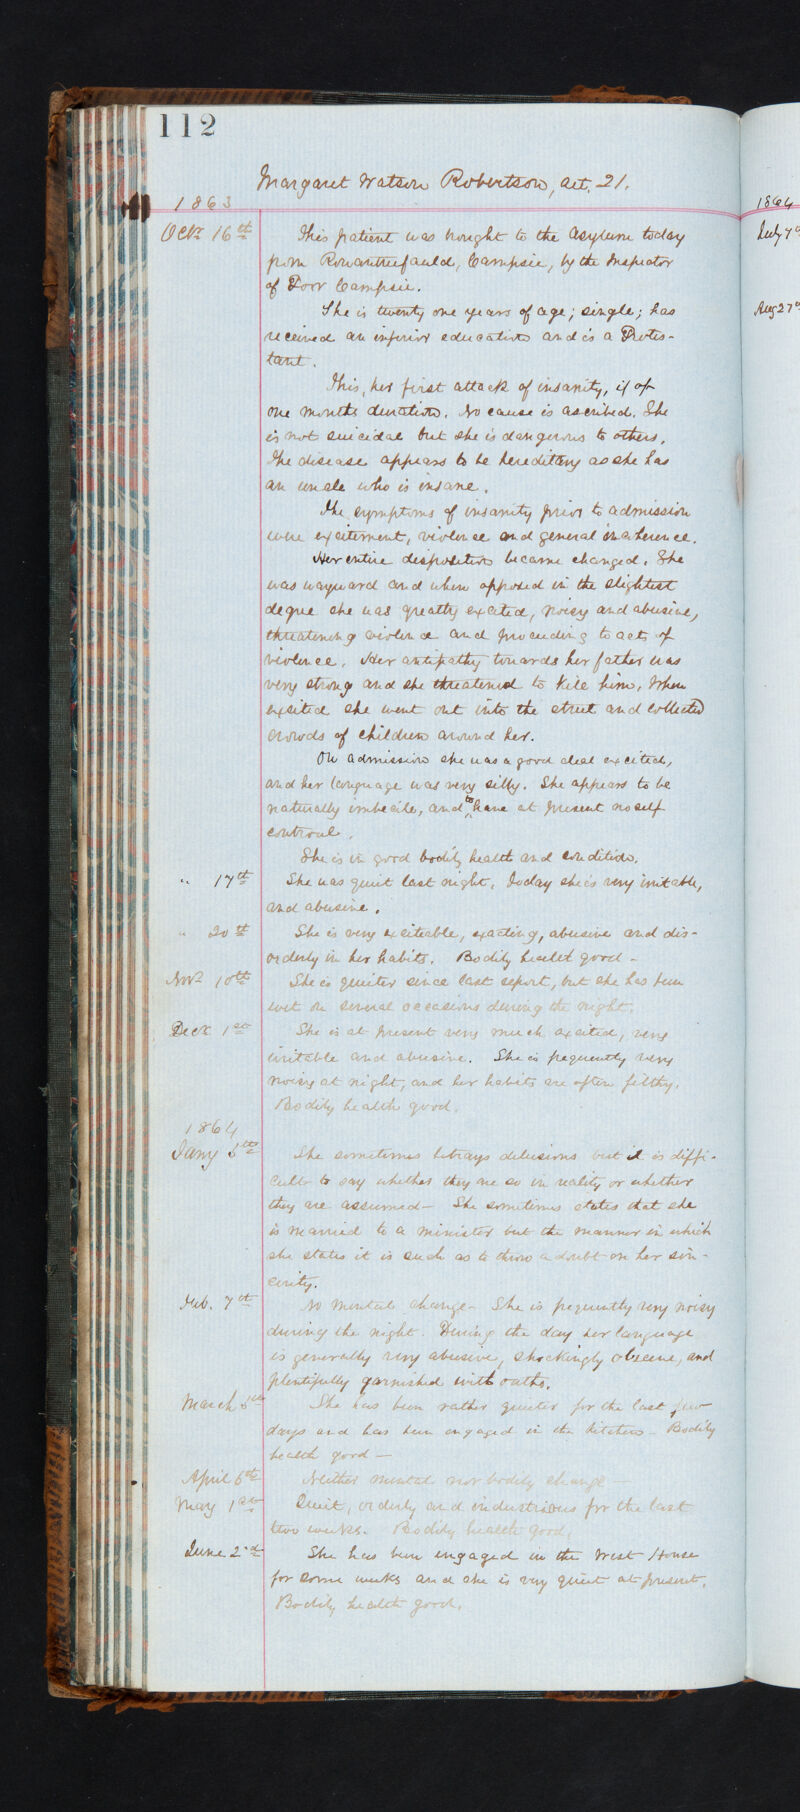 112
Margaret Watson Robertson, aet. 21.
1863
Octr 16th This patient was brought to the Asylum today
from Rowantreefauld, Campsie, by the Inspector
of Poor Campsie.
She is twenty one years of age; single; has
received an inferior education and is a Protes-
tant.
This, her first attack of insanity, is of
one months duration. No cause is ascribed. She
is not suicidal but she is dangerous to others.
The disease appears to be hereditary as she has
an uncle who is insane.
The symptoms of insanity prior to admission
were excitement, violence and general incoherence.
Her entire disposition became changed. She
was wayward and when opposed in the slightest
degree she was greatly excited, noisy and abusive,
threatening violence and proceeding to acts of
violence. Her antipathy towards her father was
very strong and she threatened to kill him. When
excited she went out into the street and collected
crowds of children around her.
On admission she was a good deal excited,
and her language was very silly. She appears to be
naturally imbecile, and to have at present no self
controul.
She is in good bodily health and condition.
" 17th She was quiet last night. Today she is very irritable,
and abusive.
" 20th She is very exciteable, exacting, abusive and dis-
orderly in her habits. Bodily health good -
Novr 10th She is quieter since last report, but she has been
wet on several occasions during the night.
Decr 1st She is at present very much excited, very
irritable and abusive. She is frequently very
noisy at night, and her habits are often filthy.
Bodily health good.
1864
Jany 5th She sometimes betrays delusions but it is diffi-
cult to say whether they are so in reality or whether
they are assumed - She sometimes states that she
is married to a minister but the manner in which
she states it is such as to throw a doubt on her sin-
cerity.
Feb. 7th No mental change - She is frequently very noisy
during the night. During the day her language
is generally very abusive, shockingly obscene, and
plentifully garnished with oaths.
March 5th She has been rather quieter for the last few
days and has been engaged in the kitchen - Bodily
health good -
April 6th Neither mental nor bodily change -
May 1st Quiet, orderly and industrious for the last
two weeks. Bodily health good.
June 2nd She has been engaged in the West House
for some weeks and she is very quiet at present.
Bodily health good.
1864
July 7th
Aug 27th